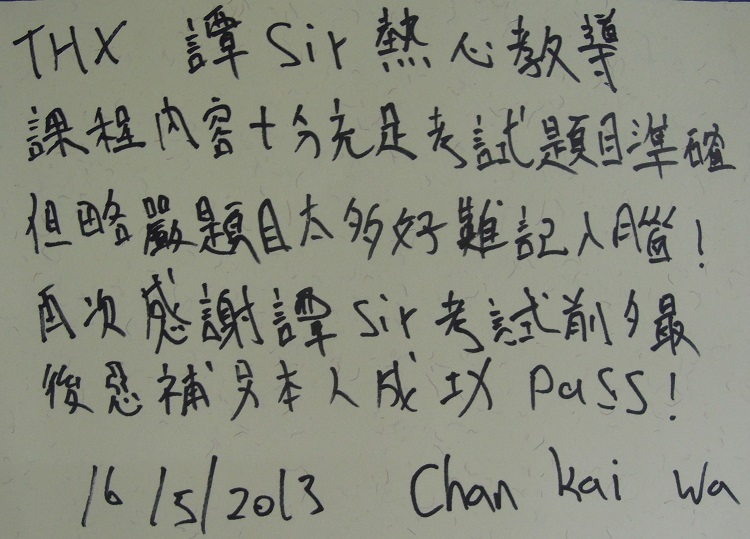 THX 譚 Sir 熱心教導
課程內容十分充足考試題目準確
但略嚴題目太多好難記入腦！
再次感謝譚 Sir 考試前夕最
後惡補另本人成功 Pass！
16/5/2013 Chan Kai Wa